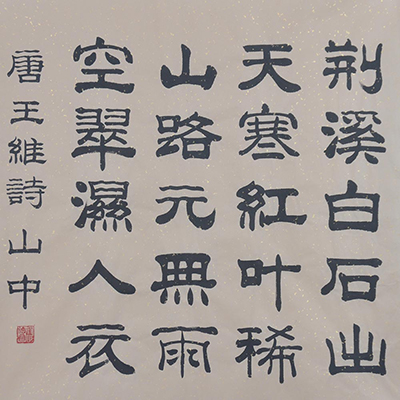 荆溪白石出
天寒紅叶稀
山路元無雨
空翠濕人衣
唐王維詩山中